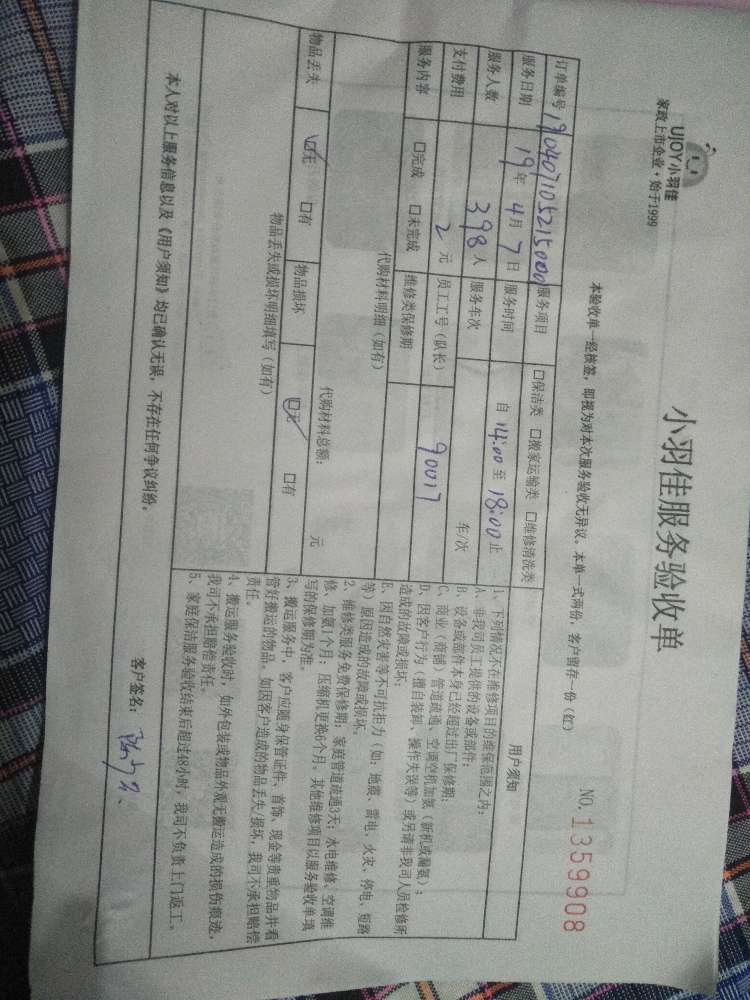 UJOY小羽佳
家政上市企业·始于1999
小羽佳服务验收单
NO. 1359908
本验收单一经核签，即视为对本次服务验收无异议。本单一式两份，客户留存一份（红）
订单编号 190407105215000 服务项目 □保洁类 □搬家运输类 □维修清洗类
服务日期 19年4月7日 服务时间 自 14:00 至 18:00 止
服务人数 398 人 服务车次 车/次
支付费用 2 元 员工工号（队长） 90017
服务内容 □完成 □未完成 维修类保修期
代购材料明细（如有）
代购材料总额： 元
物品丢失 ☑无 □有 物品损坏 ☑无 □有
物品丢失或损坏明细填写（如有）
用户须知
1、下列情况不在维修项目的维保范围之内：
A、非我司员工提供的设备或部件；
B、设备或部件本身已经超过出厂保修期；
C、商业（商铺）管道疏通、空调空机加氨（新机或漏氨）；
D、因客户行为（擅自装卸、操作失误等）或另请非我司人员检修所
造成的故障或损坏；
E、因自然灾害等不可抗拒力（如：地震、雷电、火灾、停电、短路
等）原因造成的故障或损坏。
2、维修类服务免费保修期：家庭管道疏通3天；水电维修、空调维
修、加氨1个月；压缩机更换6个月，其他维修项目以服务验收单填
写的保修期为准。
3、搬运服务中，客户应随身保管证件、首饰、现金等贵重物品并看
管好搬运的物品，如因客户造成的物品丢失/损坏，我司不承担赔偿
责任。
4、搬运服务验收时，如外包装或物品外观无搬运造成的损伤痕迹，
我司不承担赔偿责任。
5、家庭保洁服务验收结束后超过48小时，我司不负责上门返工。
本人对以上服务信息以及《用户须知》均已确认无误，不存在任何争议纠纷。
客户签名：